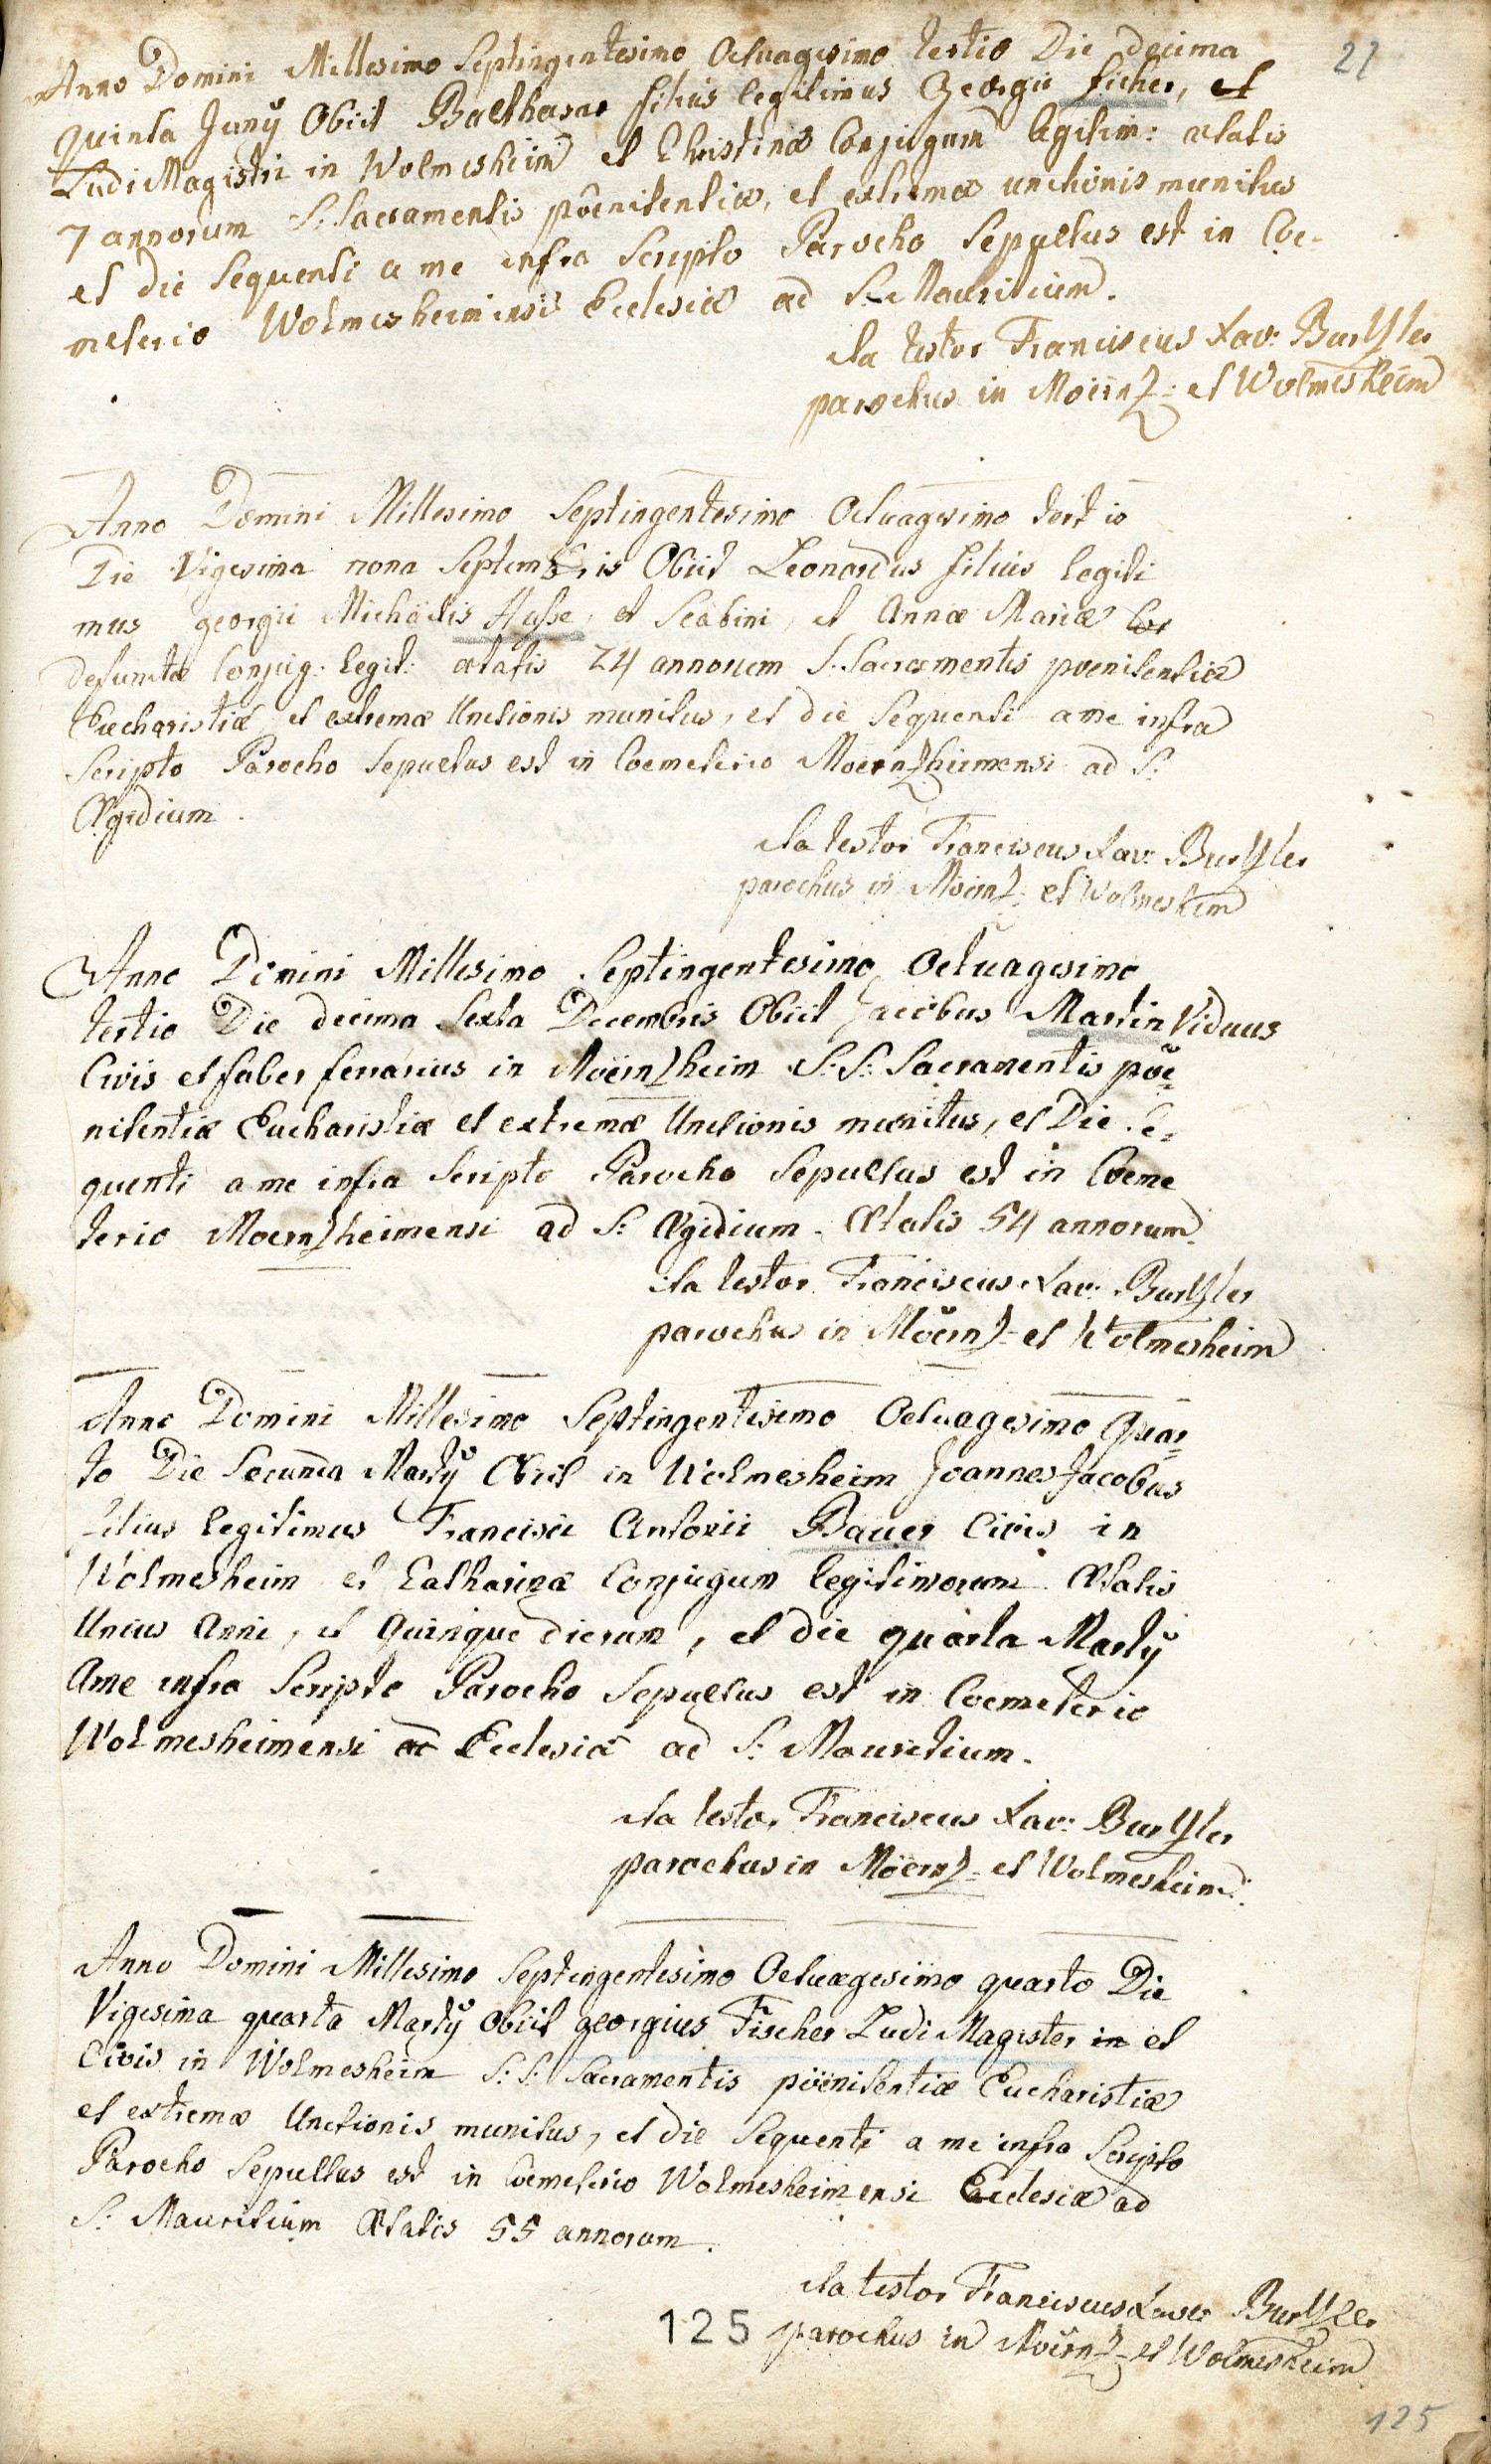 27
Anno Domini Millesimo Septingentesimo Octuagesimo tertio Die decima
quinta Junÿ Obiit Balthasar filius legitimus Georgii ficher, et
Ludi Magistri in Wolmesheim et Christinæ Conjugum legitim: ætatis
7 annorum S: Sacramentis pöenitentiæ, et extremæ unctionis munitus
et die sequenti a me infra scripto Parocho Sepultus est in Coe-
meterio Wolmesheimensis Ecclesiæ ad S: Mauritium.
Ita testor Franciscus Xav: Burtzler
parochus in Moërnz- et Wolmesheim
Anno Domini Millesimo Septingentesimo Octuagesimo tertio
Die Vigesima nona Septembris Obiit Leonardus filius legiti
mus georgii Michaëlis Husse, et Scabini, et Annæ Mariæ
defunctæ Conjug: legit: ætatis 24 annorum S: Sacramentis poenitentiæ
Eucharistiæ et extremæ Unctionis munitus, et die sequenti a me infra
scripto Parocho Sepultus est in Coemeterio Moërnzheimensi ad S:
Ægidium.
Ita testor Franciscus Xav: Burtzler
parochus in Moërnz- et Wolmesheim
Anno Domini Millesimo Septingentesimo Octuagesimo
tertio Die decima Sexta Decembris Obiit Jacobus Martin Viduus
Civis et faber ferrarius in Moërnzheim S: S: Sacramentis pöe-
nitentiæ Eucharistiæ et extremæ Unctionis munitus, et Die se-
quenti a me infra scripto Parocho Sepultus est in Coeme
terio Moërnzheimensi ad S: Ægidium. Ætatis 54 annorum.
Ita testor Franciscus Xav: Burtzler
parochus in Moërnz- et Wolmesheim
Anno Domini Millesimo Septingentesimo Octuagesimo Quar-
to Die Secunda Martÿ Obiit in Wolmesheim Joannes Jacobus
filius legitimus Francisci Antonii Bauer Civis in
Wolmesheim et Catharinæ Conjugum legitimorum Ætatis
Unius Anni, et Quinque dierum, et die quarta Martÿ
A me infra Scripto Parocho Sepultus est in Coemeterio
Wolmesheimensi Ecclesiæ ad S: Mauritium.
Ita testor Franciscus Xav: Burtzler
parochus in Moërnz- et Wolmesheim.
Anno Domini Millesimo Septingentesimo Octuagesimo quarto Die
Vigesima quarta Martÿ Obiit georgius Fischer Ludi Magister in et
Civis in Wolmesheim S: S: Sacramentis pöenitentiæ Eucharistiæ
et extremæ Unctionis munitus, et die Sequenti a me infra Scripto
Parocho Sepultus est in Coemeterio Wolmesheimensi Ecclesiæ ad
S: Mauritium Ætatis 55 annorum.
Ita testor Franciscus Xaver Burtzler
125 parochus in Moërnz- et Wolmesheim
125